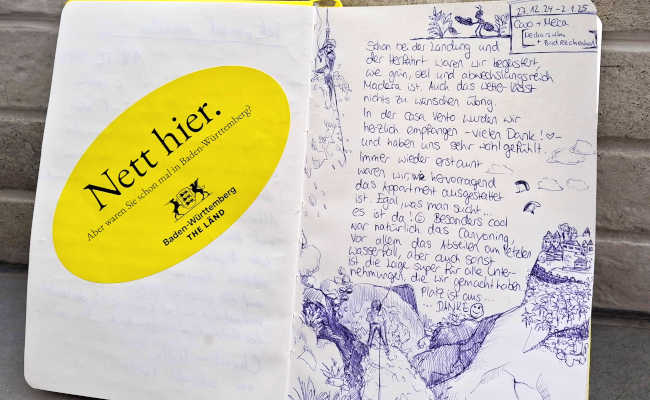 Nett hier.
Aber waren Sie schon mal in Baden-Württemberg?
Baden-Württemberg
THE LÄND
27.12.24 - 2.1.25
+ Meca
+ Bad Reichenhall
Schon bei der Landung und
der Herfahrt waren wir begeistert,
wie grün, steil und abwechslungsreich
Madeira ist. Auch das Wetter lässt
nichts zu wünschen übrig.
In der Casa Vento wurden wir
herzlich empfangen - vielen Dank! ♡ -
und haben uns sehr wohl gefühlt.
Immer wieder erstaunt
waren wir, wie hervorragend
das Appartment ausgestattet
ist. Egal, was man sucht...
es ist da! ☺ Besonders cool
war natürlich das Canyoning,
vor allem das Abseilen am letzten
Wasserfall, aber auch sonst
ist die Lage super für alle Unter-
nehmungen, die wir gemacht haben.
Platz ist aus...
... DANKE ☺